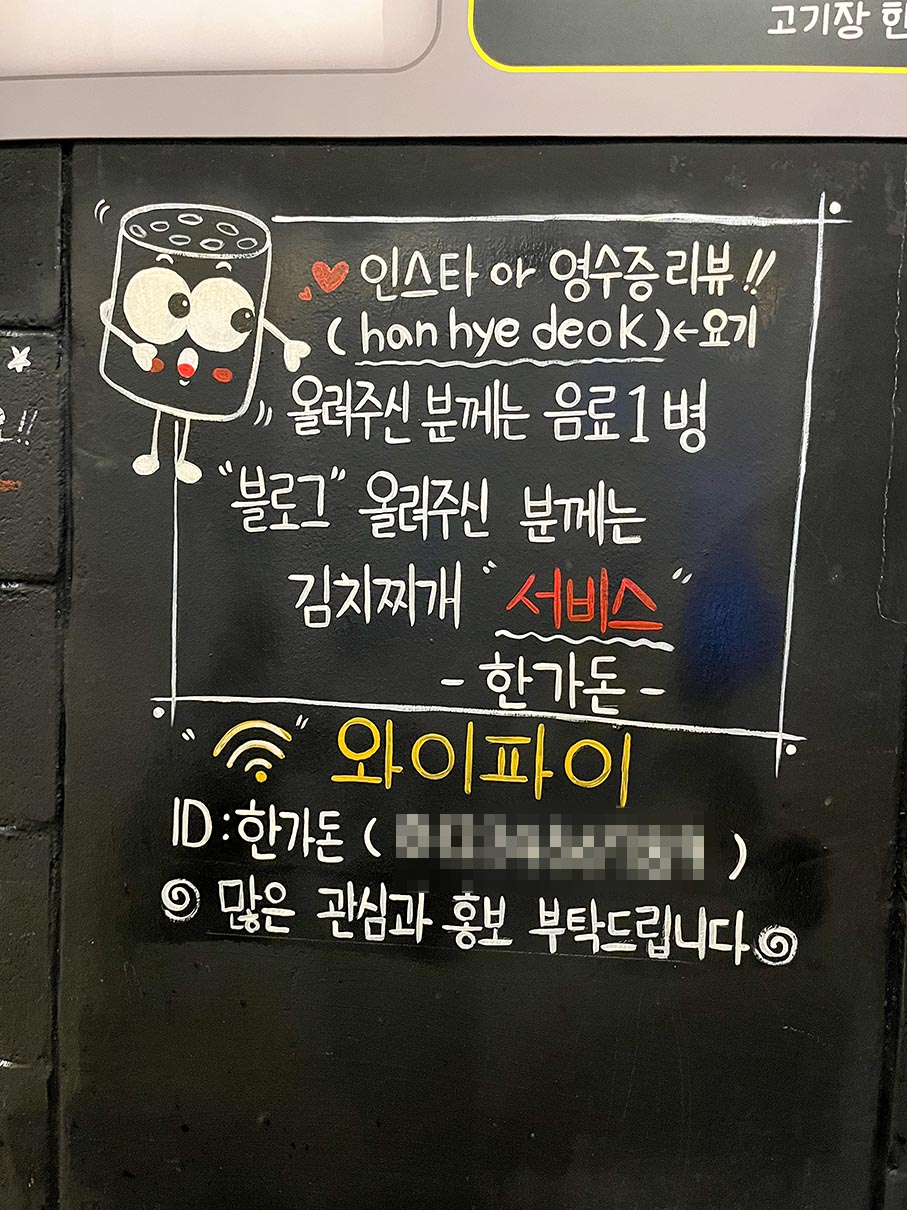 고기장 한
인스타 or 영수증리뷰!!
(han hye deok)←요기
올려주신 분께는 음료1병
"블로그" 올려주신 분께는
김치찌개 "서비스"
- 한가돈 -
" " 와이파이
ID:한가돈 ( )
많은 관심과 홍보 부탁드립니다